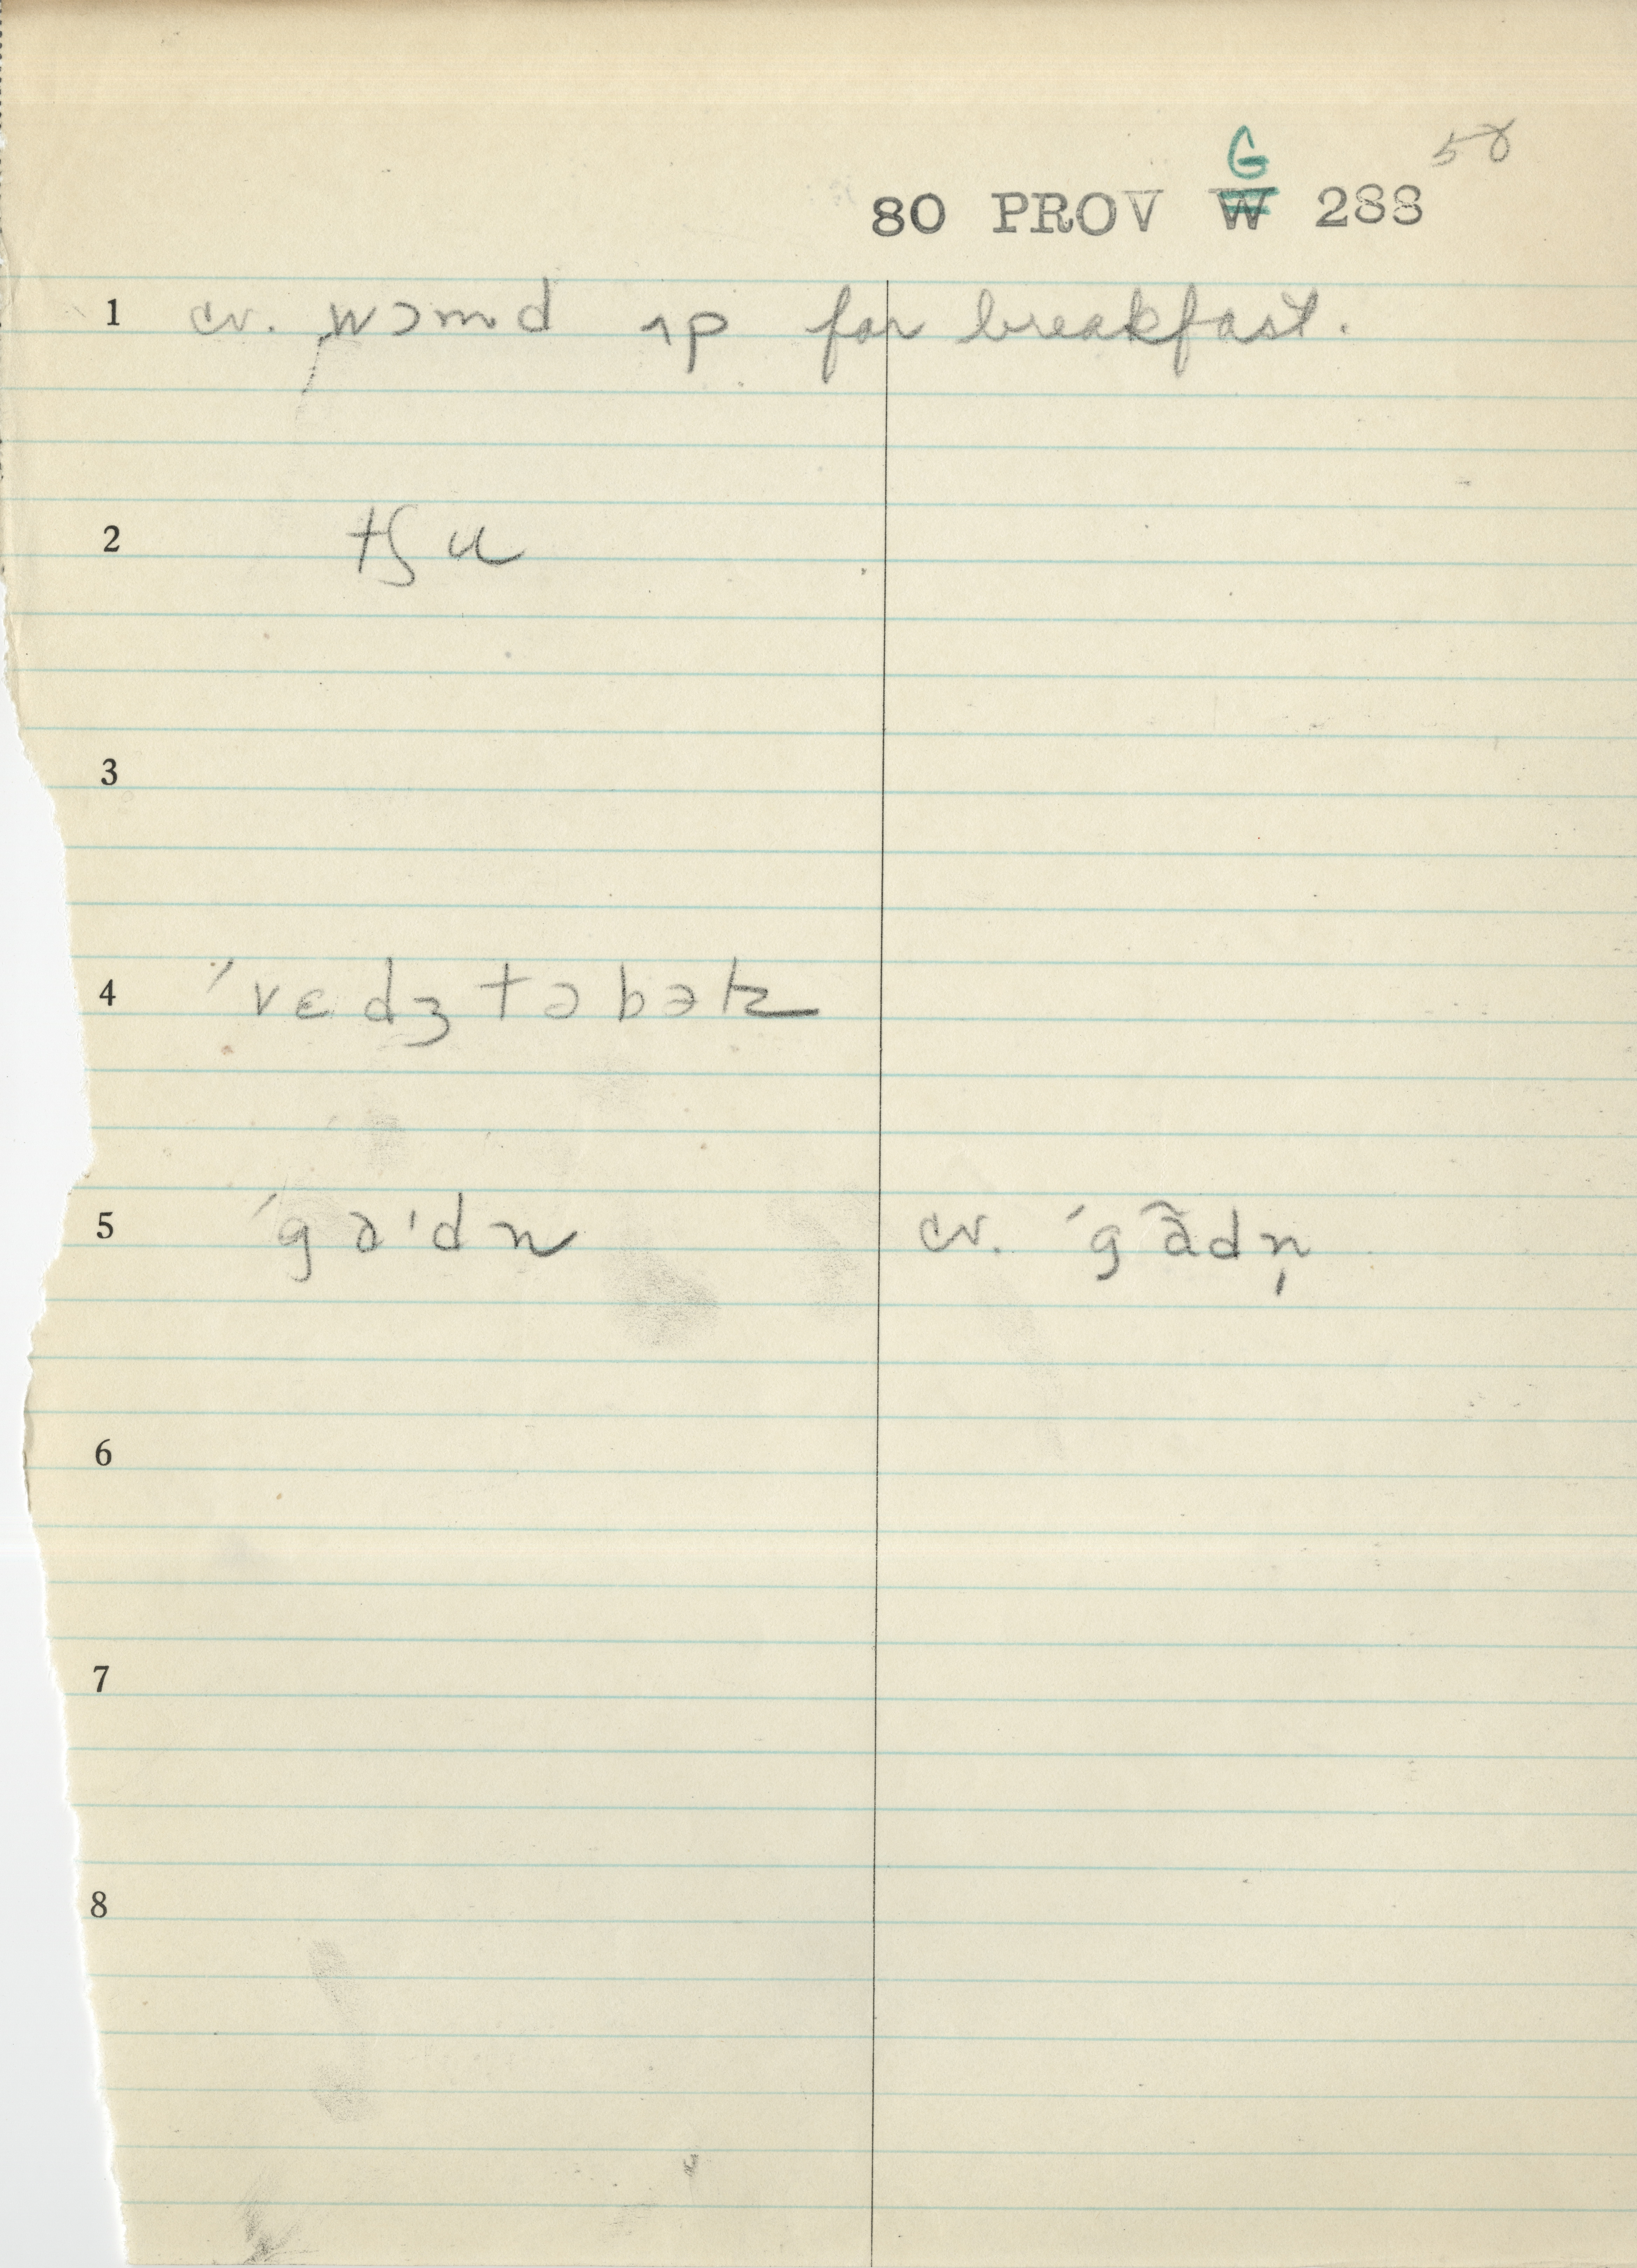 58
G
80 PROV W 288
1 cv. wɔmd ʌp for breakfast.
2 tʃu
3
4 ˊvɛdʒtəbək
5 ˊgaˈdn cv. ˊgãdn̩
6
7
8